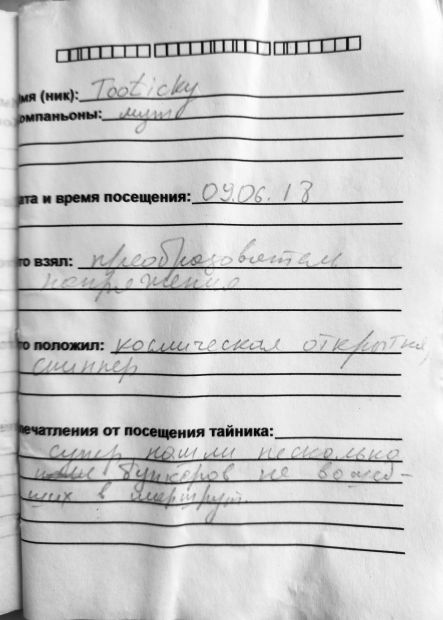 мя (ник): Tooticky
омпаньоны: муж
ата и время посещения: 09.06.18
то взял: преобразователь
напряжения
то положил: космическая открытка,
спиннер
печатления от посещения тайника:
супер нашли несколько
бункеров не вошед-
ших в маршрут